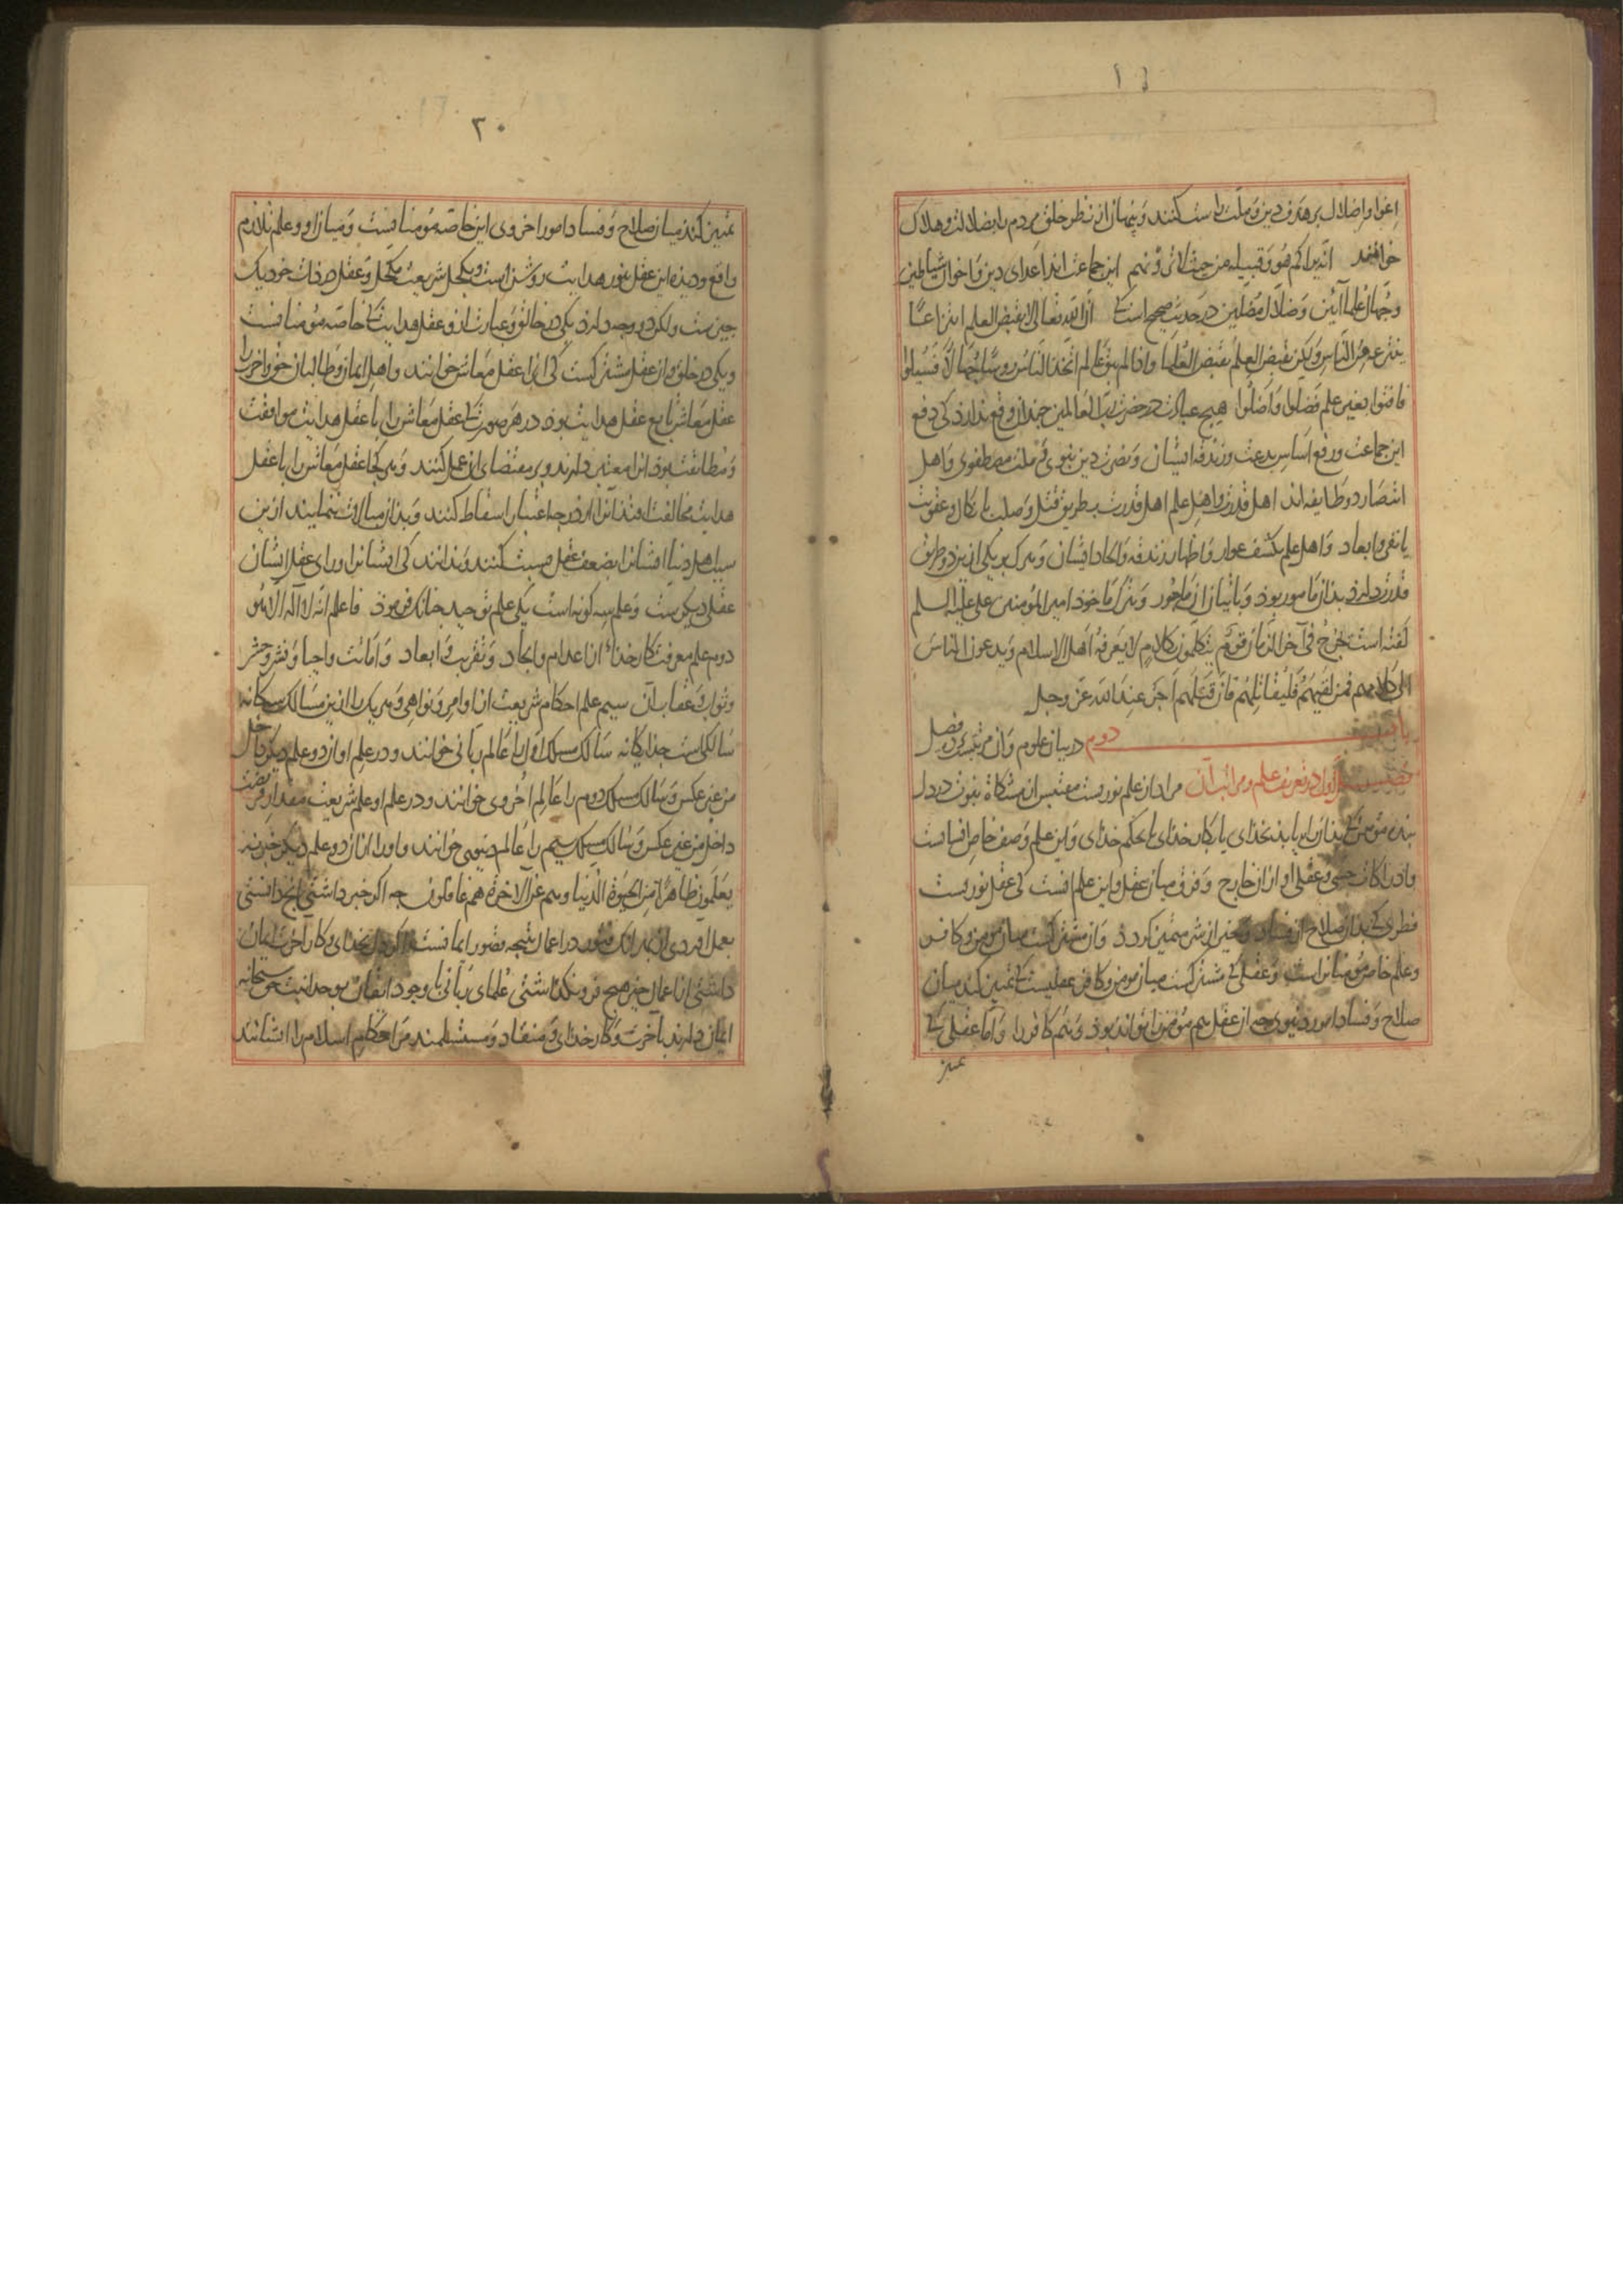 اغوا و اضلال بر هدف دین و ملت راست کنند و پنهان از نظر خلق مردم را بضلالت و هلاک
خوانند انه یراکم هو و قبیله من حیث لا ترونهم این جماعت اند اعدای دین و اخوان شیاطین
و جهال علما آئین و ضلال مضلین در حدیث صحیح است که ان الله تعالی لا یقبض العلم انتزاعا
ینتزعه من الناس ولکن یقبض العلم بقبض العلما و اذا لم یبق عالم اتخذ الناس روسا جهالا فسیلوا
فافتوا بغیر علم فضلوا و اضلوا هیچ عبادت در حضرت رب العالمین چندان وقع ندارد کی دفع
این جماعت و رفع اساس بدعت و زندقه ایشان و نصرت دین نبوی و ملت مصطفوی و اهل
انتصار دو طایفه اند اهل قدرت و اهل علم اهل قدرت بطریق قتل و صلب یا نکال و عقوبت
یا نفی و ابعاد و اهل علم بکشف عوار و اظهار زندقه و الحاد ایشان و هرک بر یکی ازین دو طریق
قدرت دارد بدان مامور بود و باتیان آن ماجور و بترک ماخوذ امیر المومنین علی علیه السلم
گفته است یخرج فی آخر الزمان قوم یتکلمون بکلام لا یعرفه اهل الاسلام و یدعون الناس
الی کلامهم فمن لقیهم فلیقاتلهم فان قتلهم اجر عند الله عز وجل
باب دوم در بیان علوم و آن مرتبست بر ده فصل
فصل اول در تعریف علم و مراتب آن مراد از علم نوریست مقتبس از مشکاة نبوت در دل
بنده مومن که بدان راه یابد بخدای یا بکار خدای یا بحکم خدای و این علم وصف خاص انسانست
و ادراکات حسی و عقلی او از آن خارج و فرق میان عقل و این علم آنست کی عقل نوریست
فطری که بدان صلاح از فساد و خیر از شر متمیز گردد و آن مشترکست میان مومن و کافر
و علم خاص مومنانراست و عقلی که مشترکست میان مومن و کافر عقلیست که تمییز کند میان
صلاح و فساد امور دنیوی چه از عقل هم مومنرا تواند بود و هم کافر را و اما عقلی که
تمییز
۲۰
تمییز کند میان صلاح و فساد امور اخروی این خاصه مومنانست و میان او و علم تلازم
واقع و دیده این عقل بنور هدایت روشن است و بکحل شریعت مکحل و عقل در ذات خود یک
چیز ست ولکن دو وجه دارد یکی در خالق و عبارت از و عقل هدایت که خاصه مومنانست
و یکی در خلق و آن عقل مشترکست کی آنرا عقل معاش خوانند و اهل ایمان و طالبان حق و آخرت را
عقل معاش تابع عقل هدایت بود در هر صورت که عقل معاش را با عقل هدایت موافقت
و مطابقت بود آنرا معتبر دارند و بر مقتضای آن عمل کنند و هر کجا عقل معاش را با عقل
هدایت مخالفت افتد آنرا از درجه اعتبار اسقاط کنند و بدان مبالات ننمایند ازین
سبب اهل دنیا ایشانرا بضعف عقل نسبت کنند و ندانند کی ایشانرا ورای عقل ایشان
عقلی دیگرست و علم سه گونه است یکی علم توحید چنانک فرمود فاعلم انه لا اله الا هو
دوم علم معرفت کار خدا از اعدام و ایجاد و تقریب و ابعاد و امانت و احیا و نشر و حشر
و ثواب و عقاب آن سیم علم احکام شریعت از اوامر و نواهی و هر یک را ازین مسالک سه گانه
سالکی است جداگانه سالک مسلک اول را عالم ربانی خوانند و در علم او آن دو علم دیگر داخل
من غیر عکس و سالک مسلک دوم را عالم اخروی خوانند و در علم او علم شریعت بمقدار فریضت
داخل من غیر عکس و سالک مسلک سیم را عالم دنیوی خوانند و او را از آن دو علم دیگر خبر نه
یعلمون ظاهرا من الحیوة الدنیا و هم عن الاخرة هم غافلون چه اگر خبر داشتی آنچ دانستی
بعمل آوردی از بهر آنک قصور در اعمال نتیجه قصور ایمانست و اگر دل بخدای و کار آخرت ایمان
داشتی از اعمال خیر هیچ فرو نگذاشتی علمای ربانی با وجود ایقان بوحدانیت حق سبحانه
ایمان دارند بآخرت و کار خدای و منقاد و مستسلمند مر احکام اسلام را ایشانند